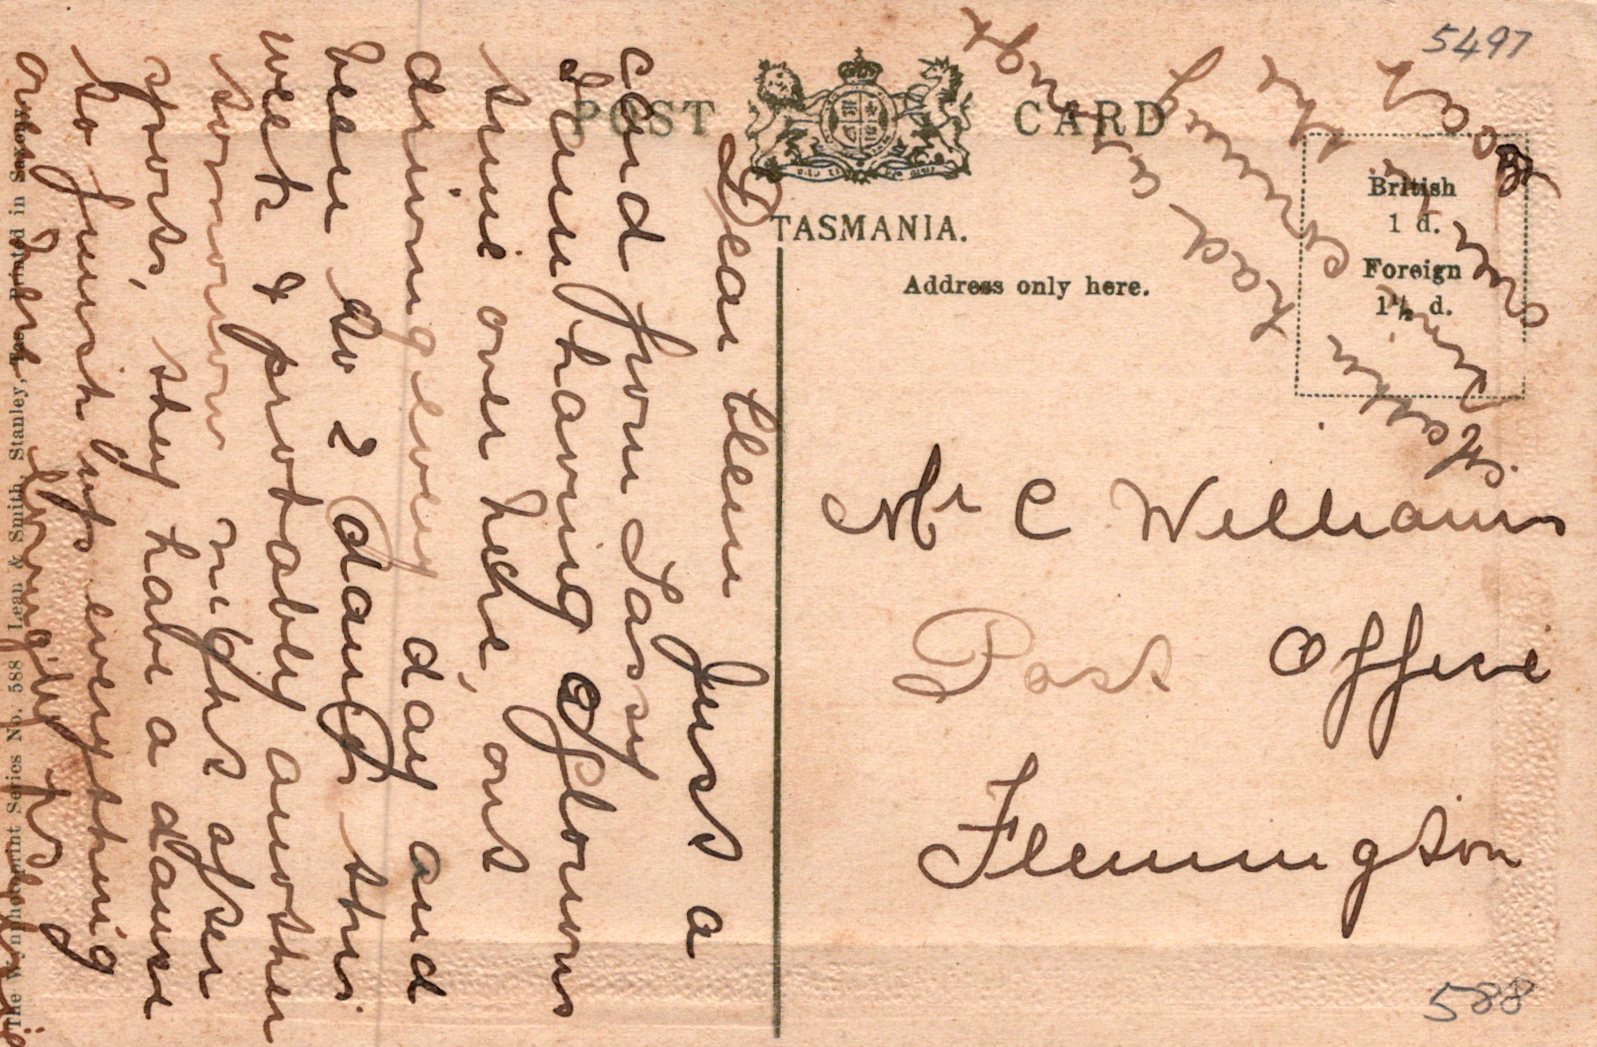 5497
POST CARD
TASMANIA.
Address only here.
British
1 d.
Foreign
1½ d.
Mr C Williams
Post Office
Flemington
588
Dear Clem Just a
card from Tassy
I am having a glorious
time over here, out
driving every day and
been to 2 dances this
week & probably another
tomorrow night after
sports, they have a dance
to finish up everything
over here
had a
The Wynphotoprint Series No. 588 Lean & Smith, Stanley, Tas. Printed in Saxony.